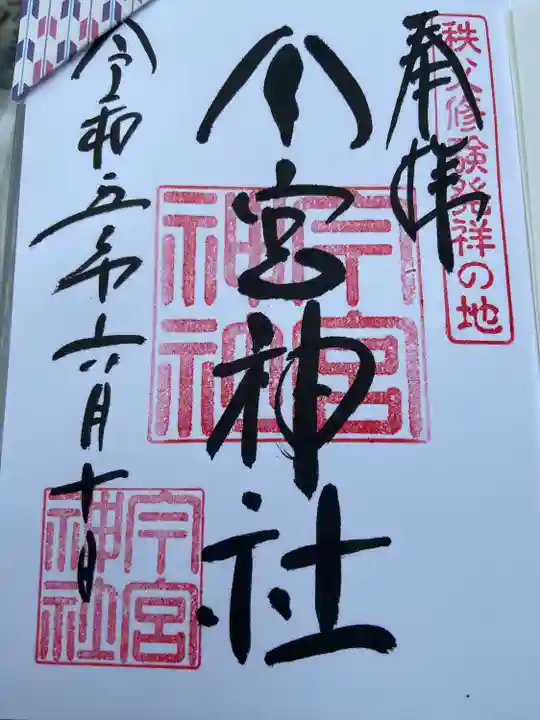 秩父修験発祥の地
奉拝
今宮神社
今宮
神社
令和五年六月十日
今宮
神社